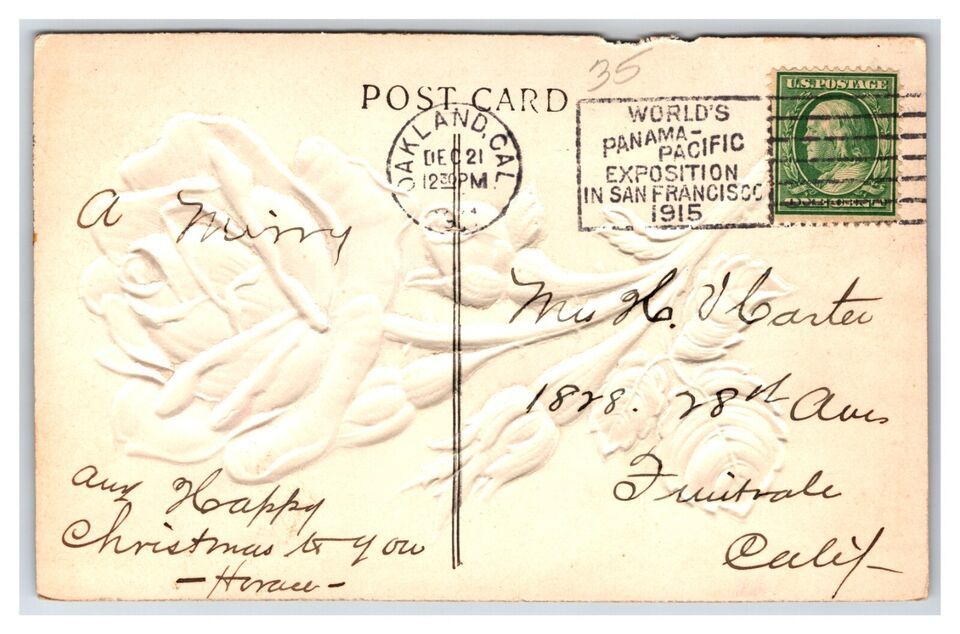 35
POST CARD
OAKLAND, CAL.
DEC 21
12 30 PM
WORLD'S
PANAMA-
PACIFIC
EXPOSITION
IN SAN FRANCISCO
1915
U.S. POSTAGE
ONE CENT
A Mirry
any Happy
Christmas to you
- Horace -
H.
1828. 28th Ave
Fruitvale
Calif-